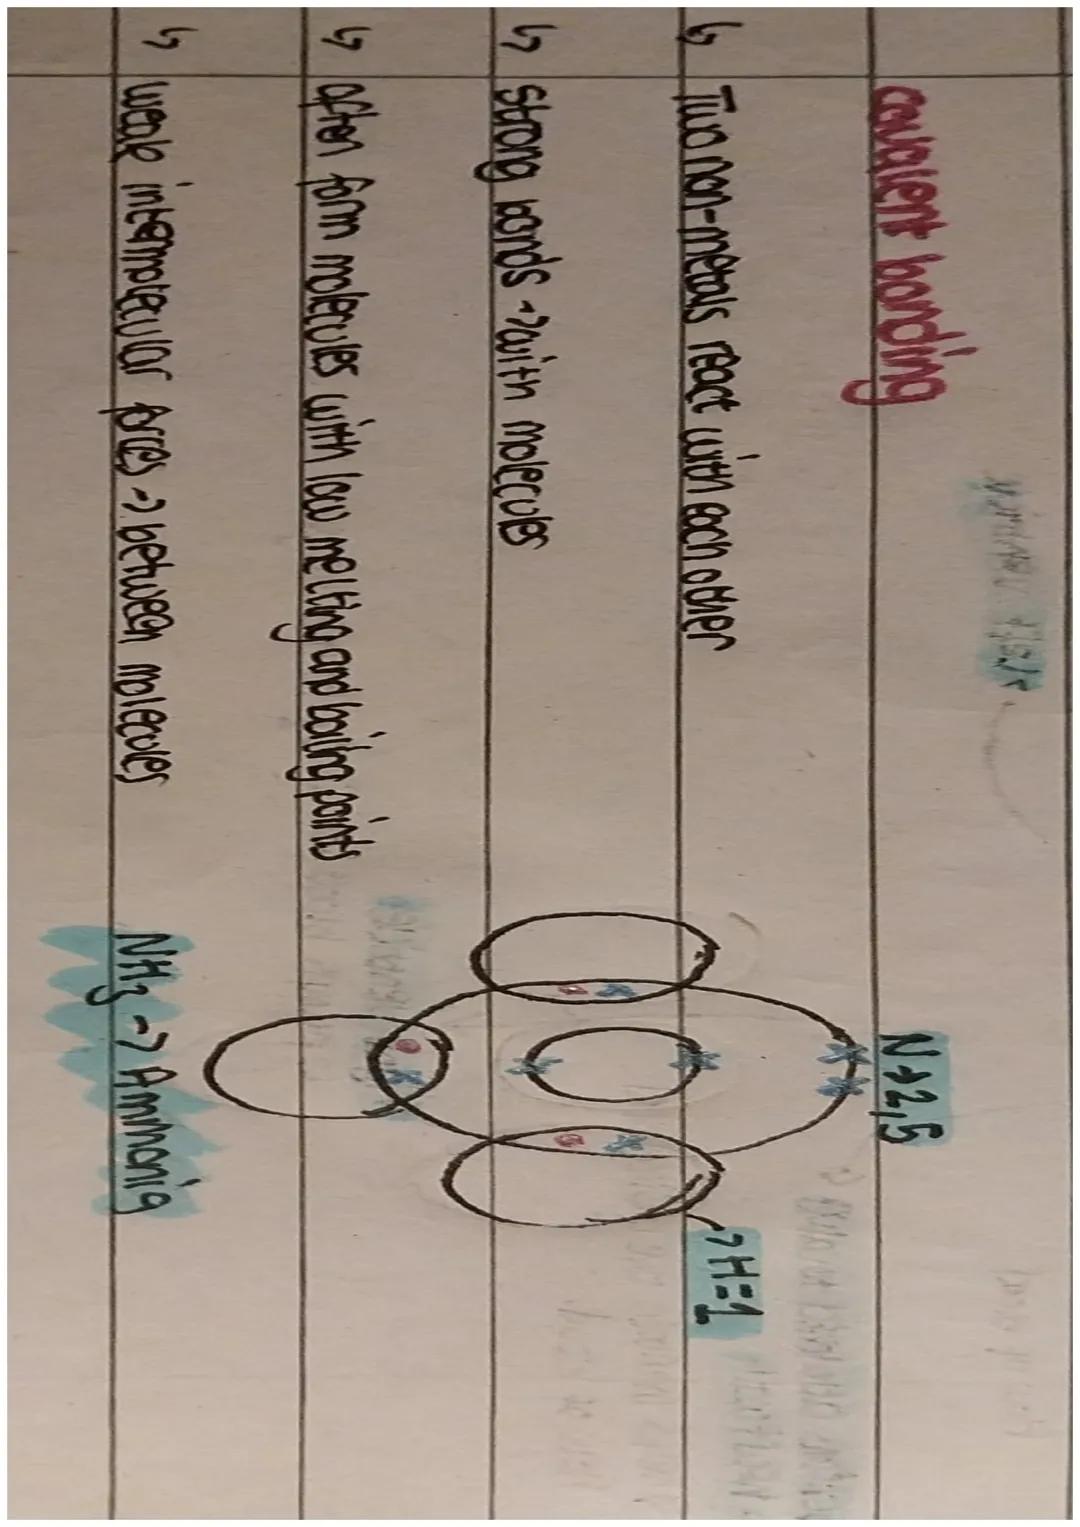 covalent bonding
N→2,5
↳ Two non-metals react with each other
→H=1
↳ Strong bonds →with molecules
↳ often form molecules with low melting and boiling points
↳ weak intermolecular forces → between molecules
NH3 → Ammonia